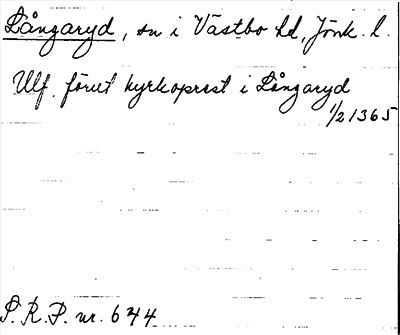 Långaryd, sn i Västbo hd, Jönk. l.
Ulf. förut kyrkoprest i Långaryd
1/2 1365
S. R. P. nr. 644